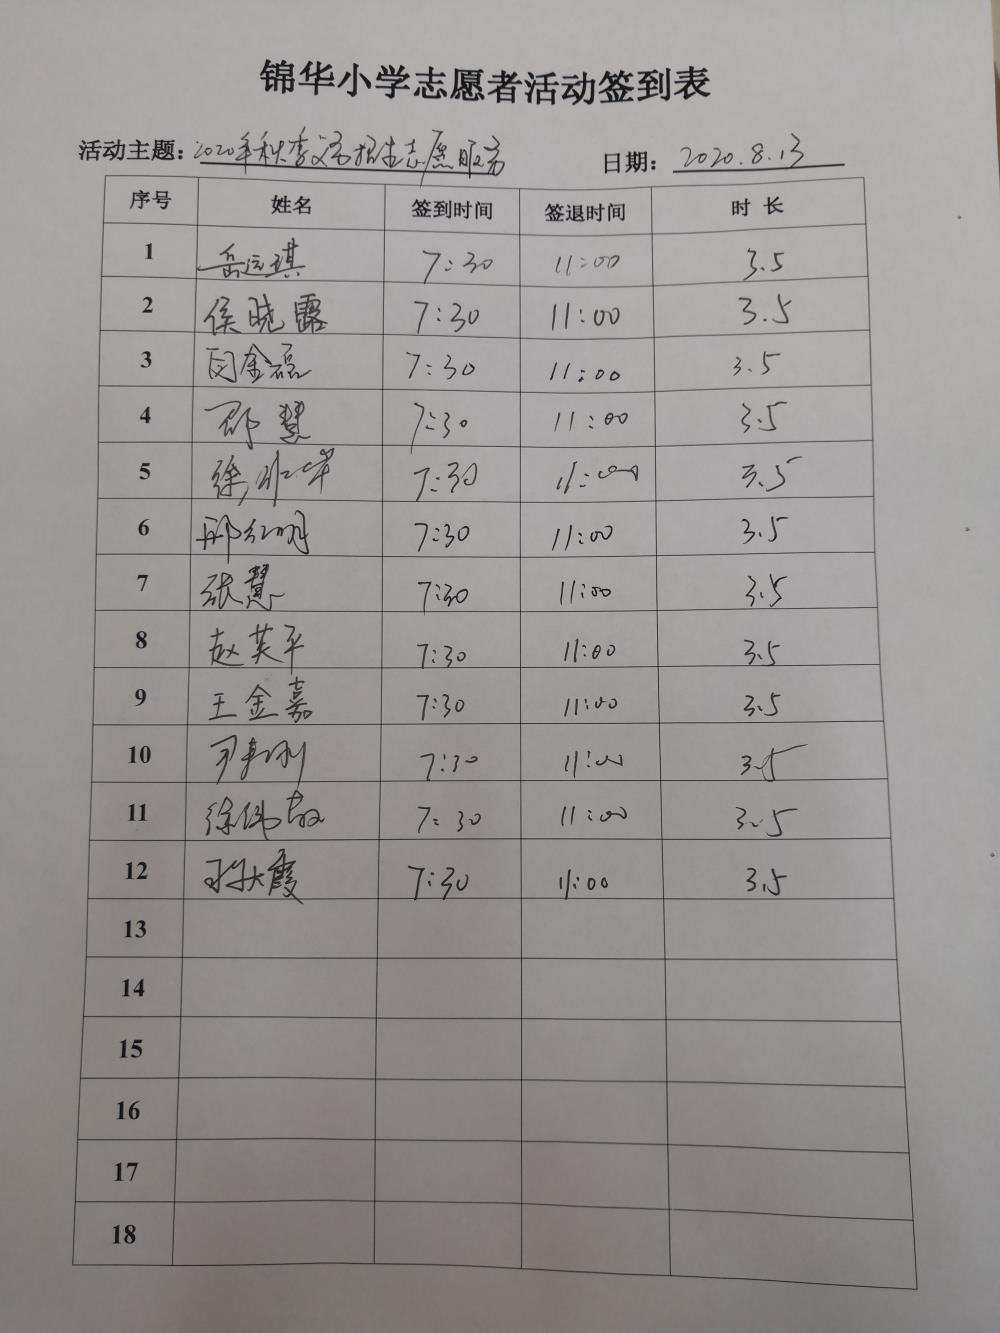 锦华小学志愿者活动签到表
活动主题: 2020年秋季 招生志愿服务 日期: 2020.8.13
序号 姓名 签到时间 签退时间 时 长
1 岳远琪 7:30 11:00 3.5
2 侯晓露 7:30 11:00 3.5
3 闫金磊 7:30 11:00 3.5
4 邵慧 7:30 11:00 3.5
5 徐 7:30 11:00 3.5
6 邢红明 7:30 11:00 3.5
7 张慧 7:30 11:00 3.5
8 赵英平 7:30 11:00 3.5
9 王金嘉 7:30 11:00 3.5
10 7:30 11:00 3.5
11 徐伟敏 7:30 11:00 3.5
12 霞 7:30 11:00 3.5
13
14
15
16
17
18